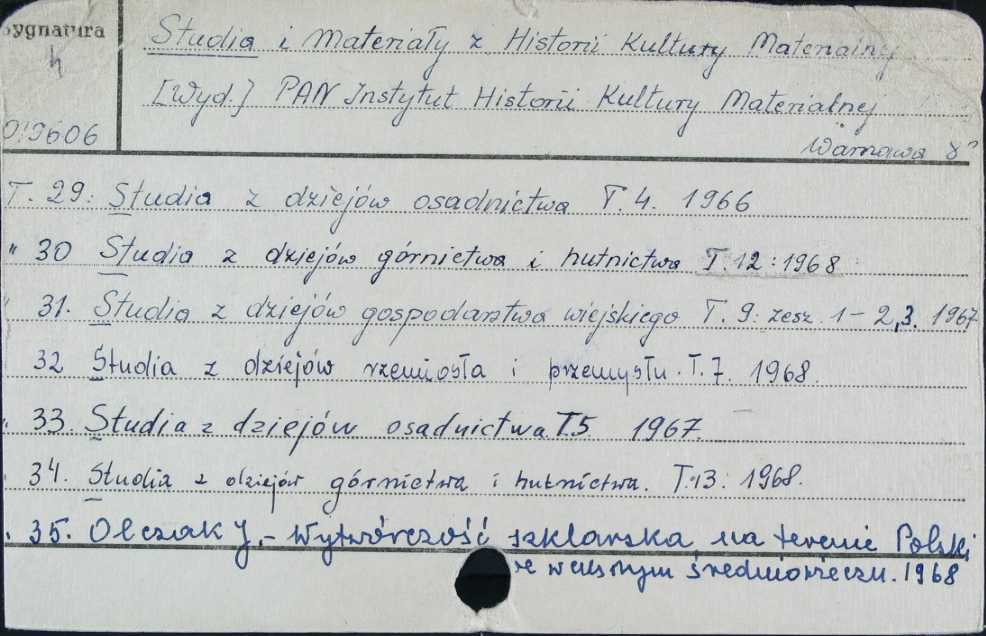 Sygnatura
Studia i Materiały z Historii Kultury Materialnej
[Wyd.] PAN Instytut Historii Kultury Materialnej
Warszawa 8°
T. 29: Studia z dziejów osadnictwa T. 4. 1966
" 30 Studia z dziejów górnictwa i hutnictwa T. 12 : 1968
" 31. Studia z dziejów gospodarstwa wiejskiego T. 9: zesz. 1-2,3. 1967
32 Studia z dziejów rzemiosła i przemysłu. T. 7. 1968.
" 33. Studia z dziejów osadnictwa T.5 1967.
" 34. Studia z dziejów górnictwa i hutnictwa. T. 13: 1968.
" 35. Olczak J. - Wytwórczość szklarska na terenie Polski
we wczesnym średniowieczu. 1968